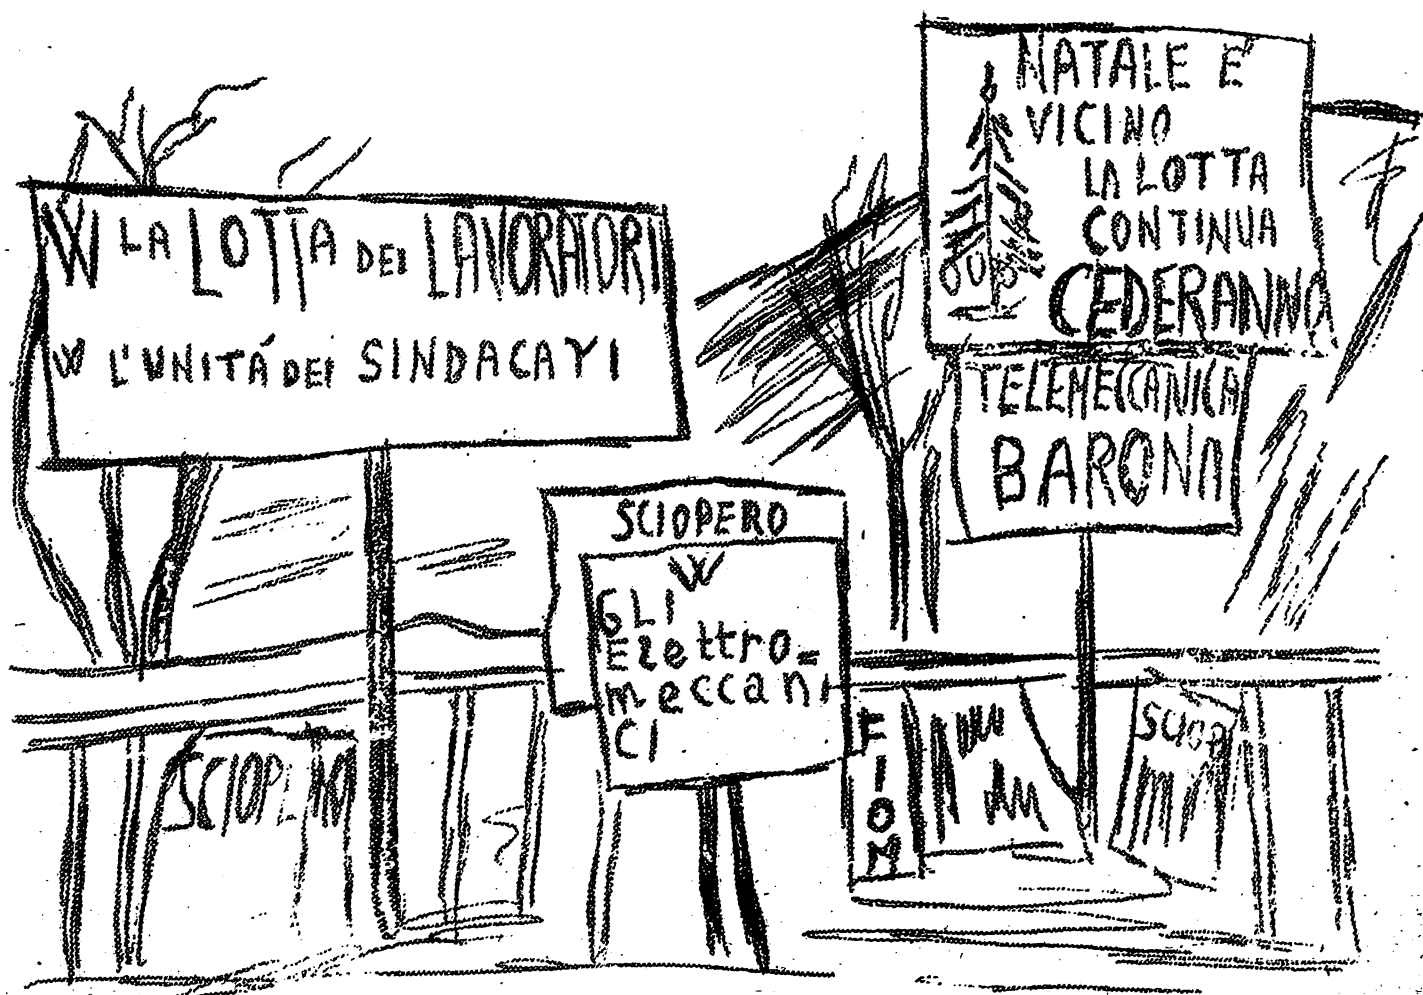 W LA LOTTA DEI LAVORATORI
W L'UNITÁ DEI SINDACATI
NATALE E'
VICINO
LA LOTTA
CONTINUA
CEDERANNO
TELEMECCANICA
BARONA
SCIOPERO
W
GLI
Elettro=
meccani
CI
FIOM
SCIOPERO
SCIOP